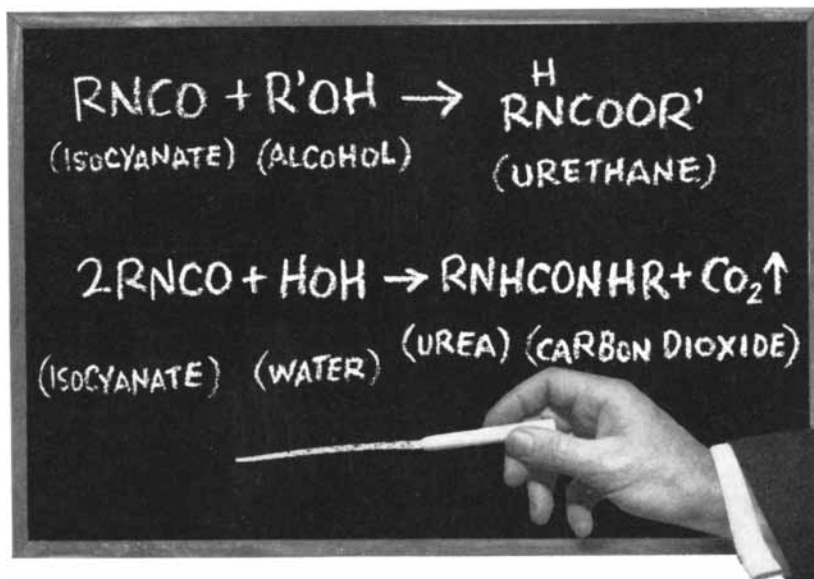 RNCO + R'OH → RNCOOR'
H
(ISOCYANATE) (ALCOHOL) (URETHANE)
2RNCO + HOH → RNHCONHR + CO₂↑
(ISOCYANATE) (WATER) (UREA) (CARBON DIOXIDE)